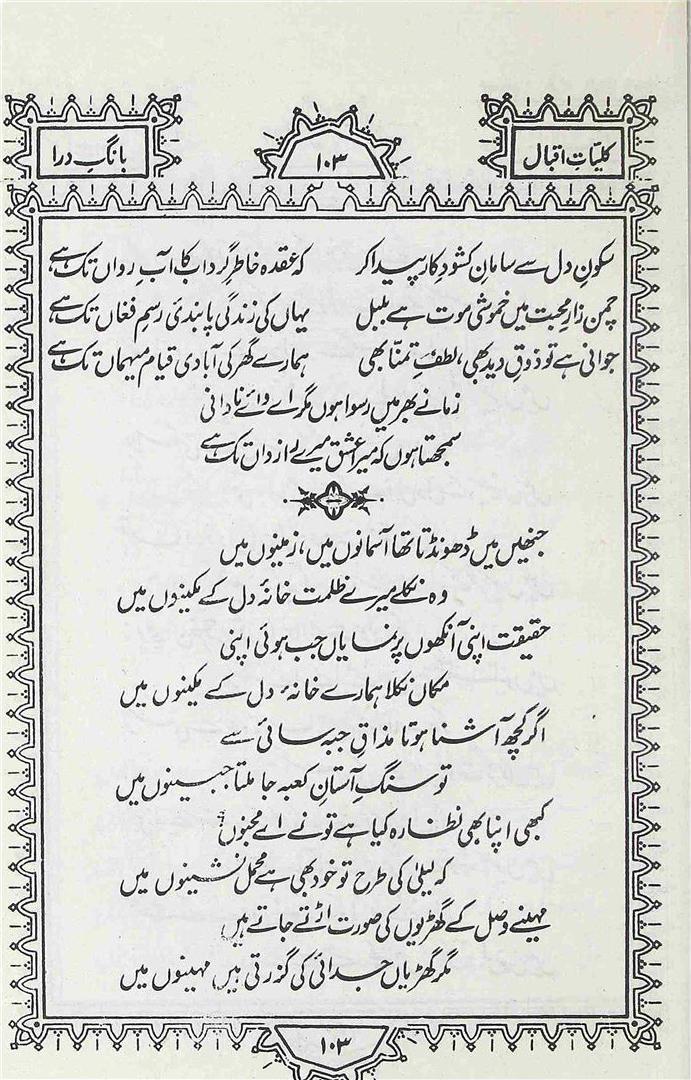 کلیاتِ اقبال
۱۰۳
بانگِ درا
سکونِ دل سے سامانِ کشودِ کار پیدا کر کہ عقدہ خاطرِ گرداب کا آبِ رواں تک ہے
چمن زارِ محبت میں خموشی موت ہے بلبل یہاں کی زندگی پابندیِ رسمِ فغاں تک ہے
جوانی ہے تو ذوقِ دید بھی، لطفِ تمنّا بھی ہمارے گھر کی آبادی قیامِ میہماں تک ہے
زمانے بھر میں رسوا ہوں مگر اے وائے نادانی
سمجھتا ہوں کہ میرا عشق میرے رازداں تک ہے
جنھیں میں ڈھونڈتا تھا آسمانوں میں، زمینوں میں
وہ نکلے میرے ظلمت خانۂ دل کے مکینوں میں
حقیقت اپنی آنکھوں پر نمایاں جب ہوئی اپنی
مکاں نکلا ہمارے خانۂ دل کے مکینوں میں
اگر کچھ آشنا ہوتا مذاقِ جبہ سائی سے
تو سنگِ آستانِ کعبہ جا ملتا جبینوں میں
کبھی اپنا بھی نظارہ کیا ہے تو نے اے مجنوں
کہ لیلیٰ کی طرح تو خود بھی ہے محمل نشینوں میں
مہینے وصل کے گھڑیوں کی صورت اڑتے جاتے ہیں
مگر گھڑیاں جدائی کی گزرتی ہیں مہینوں میں
۱۰۳